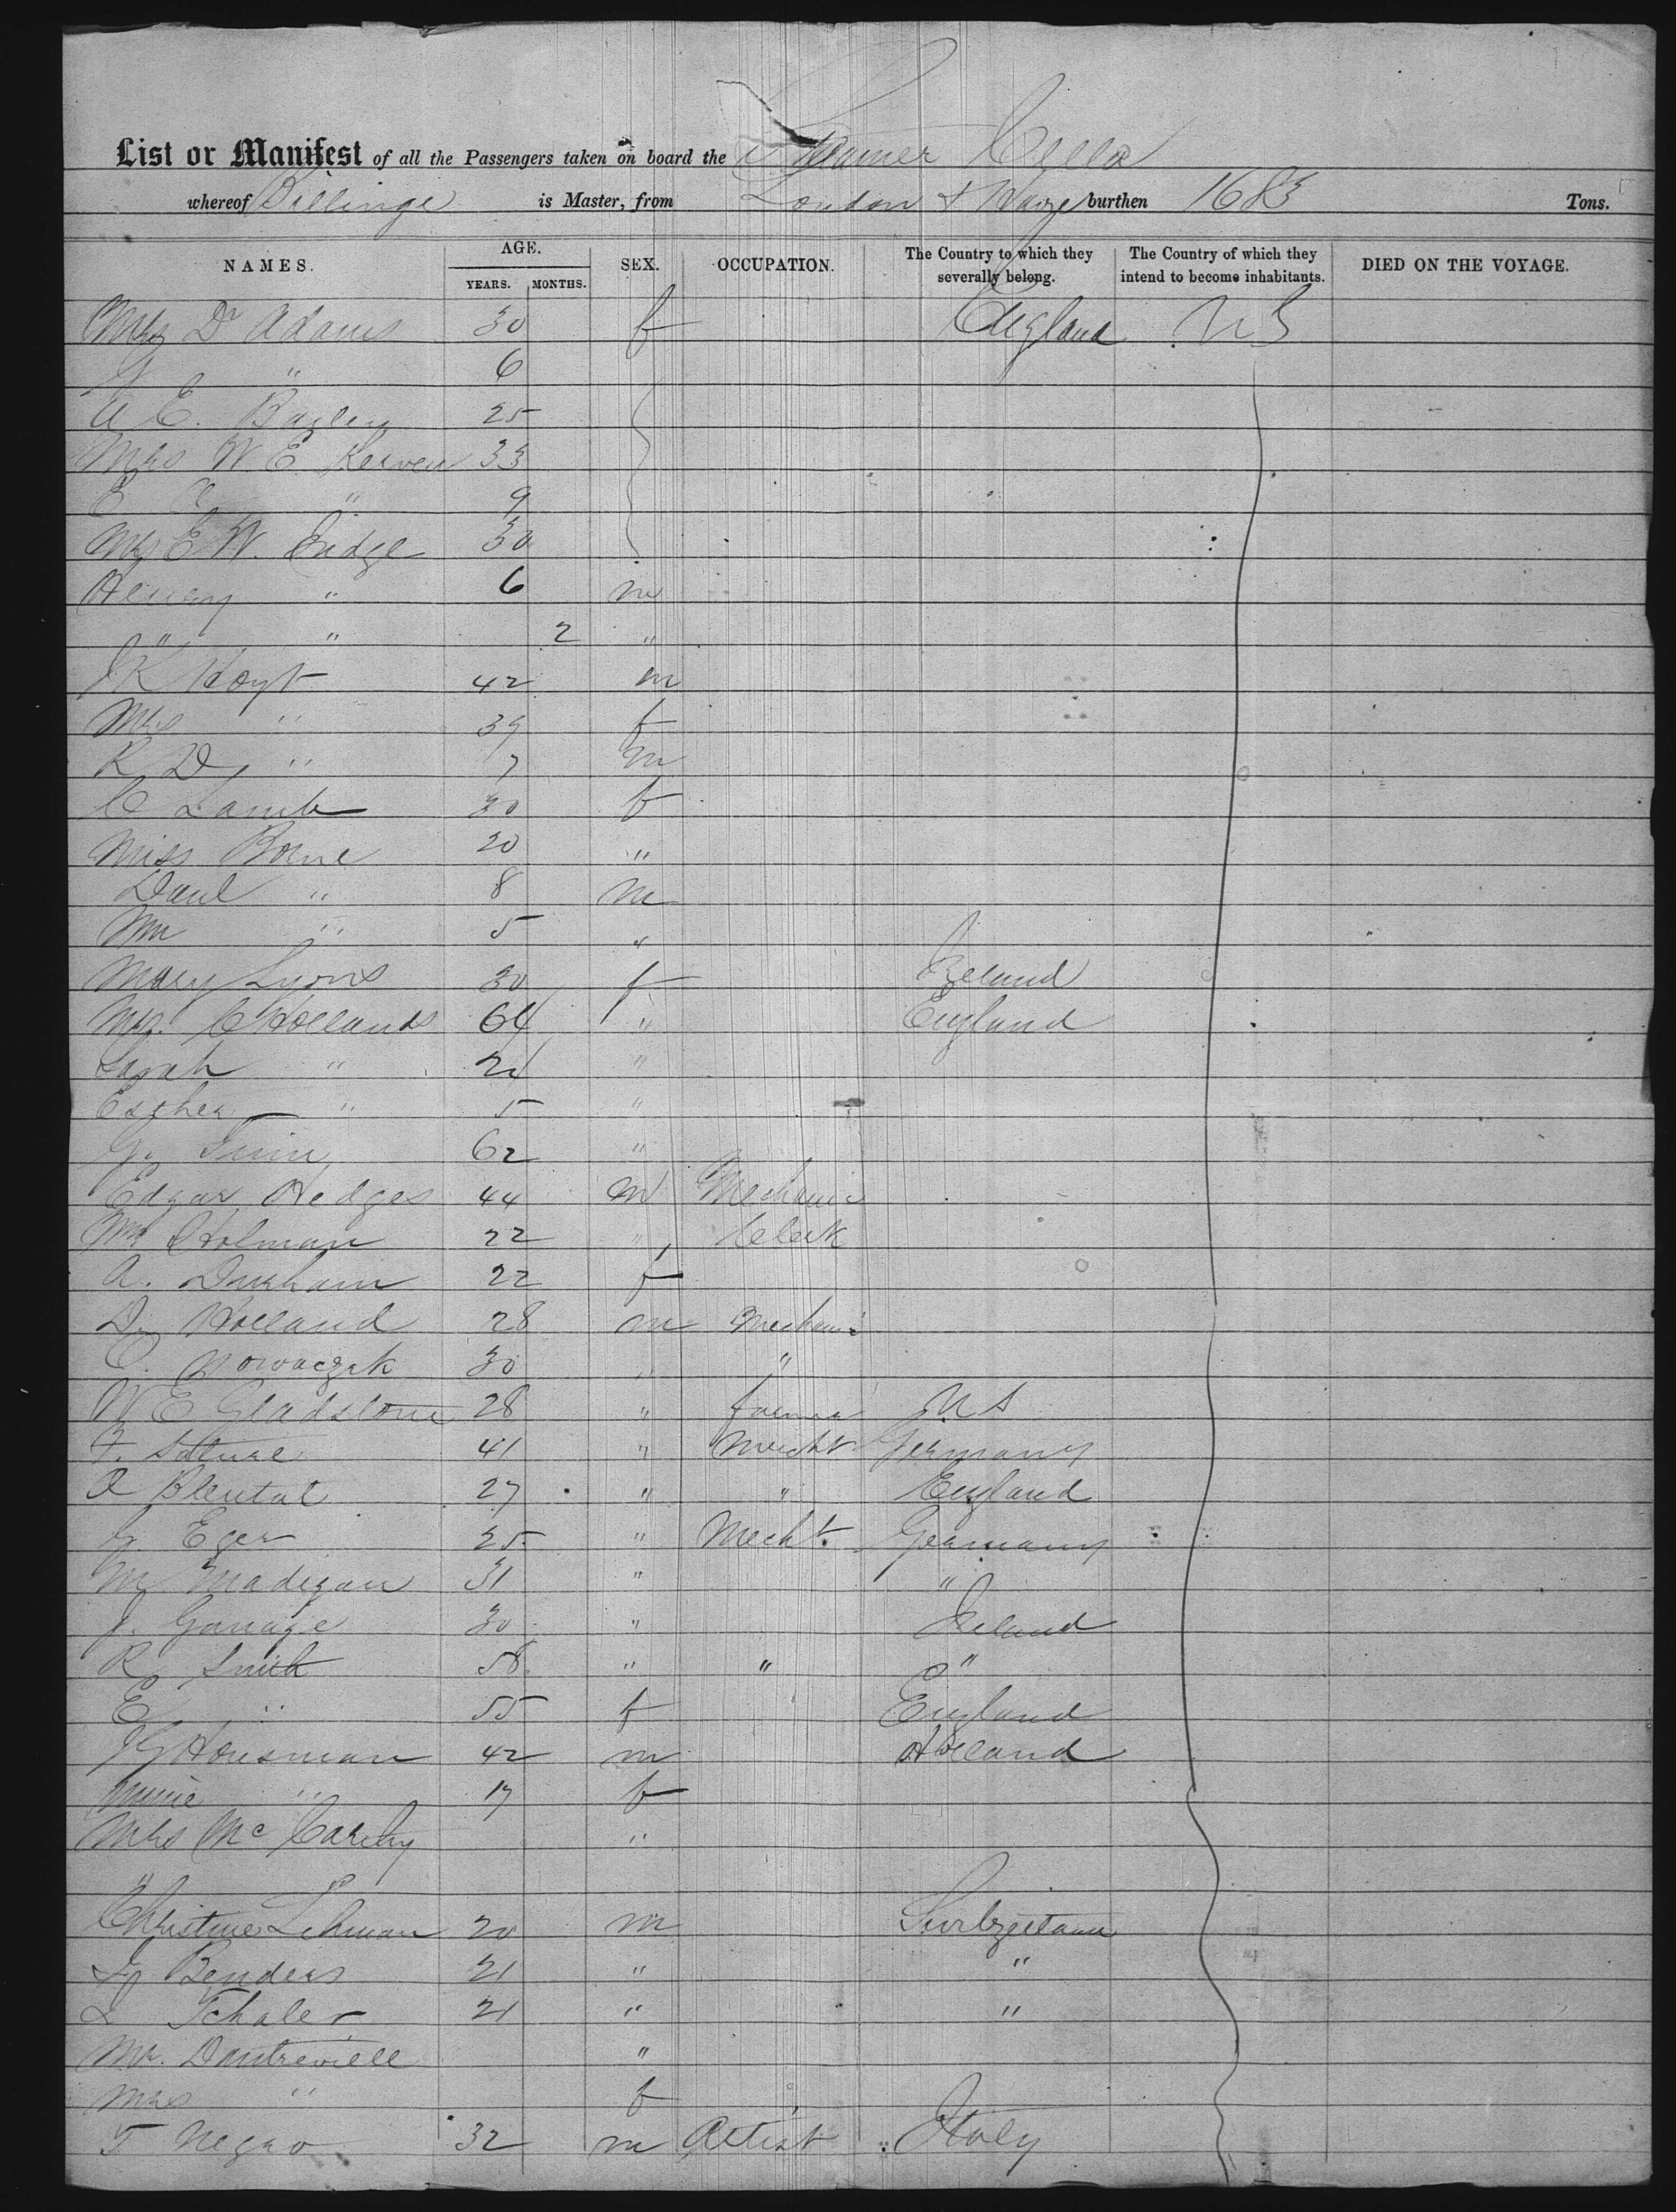 List or Manifest of all the Passengers taken on board the Steamer Cella
whereof Billinge is Master, from London & Havre burthen 1683 Tons.
NAMES. AGE. YEARS. MONTHS. SEX. OCCUPATION. The Country to which they severally belong. The Country of which they intend to become inhabitants. DIED ON THE VOYAGE.
Mrs Dr Adams 30 f England U S
" 6
A E. Bayley 25
Mrs W. E. Kerven 33
E " 9
Mrs E W. Endge 30
Henry " 6 m
" " 2 "
J K Hoyt 42 m
Mrs " 39 f
R D " 7 m
C Lamb 30 f
Miss Borne 20 "
Danl " 8 m
Wm " 5 "
Mary Lyons 30 f Ireland
Mrs. C Hollands 64 " England
Sarah " 24 "
Esther " 5 "
G. 62 "
Edgar Hedges 44 m Mechanic
Wm Holman 22 " Clerk
A. Durham 22 f
D. Holland 28 m Mechanic
C. Nowaczek 30 " "
W E Gladstone 28 " farmer U S
F. 41 " Mercht Germany
A Blental 27 " " England
G. Eger 25 " Mecht. Germany
M Madigan 31 " "
J. Garrage 30 " Ireland
R. Smith 58 " " "
E " 55 f England
J G Housman 42 m Holland
Minie " 17 f
Mrs McCarthy "
"
Christine Lehman 20 m
Benders 21 " "
L Tchaler 21 " "
Mr. Dantreviell "
Mrs " f
T Negro 32 m Artist Italy